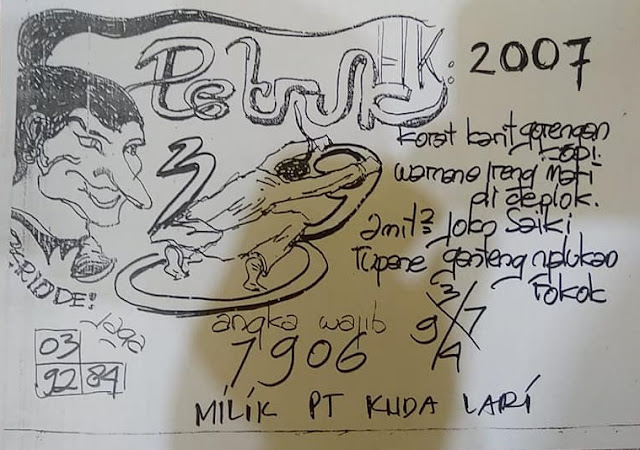 Petruk HK: 2007
3
Korat karit gorengan
Sapi.
warnane ireng mati
di deplok.
Amit2 Joko Saiki
Tupane ganteng nylukan
Pokok
3
9 X 7
4
Jaga
03
92 84
angka wajib
7906
MILIK PT KUDA LARI